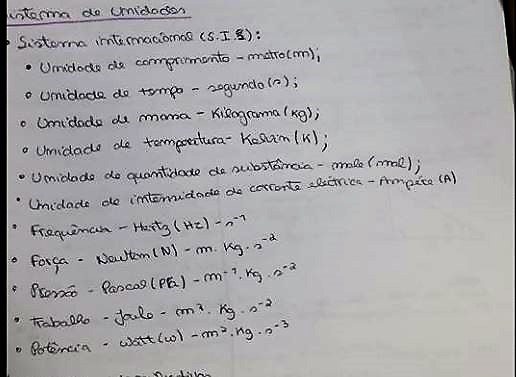 Sistema de Unidades
• Sistema internacional (S.I.):
• Unidade de comprimento - metro(m);
• Unidade de tempo - segundo(s);
• Unidade de massa - Kilograma(kg);
• Unidade de temperatura - Kelvin(K);
• Unidade de quantidade de substância - mole(mol);
• Unidade de intensidade de corrente eléctrica - Ampére(A)
• Frequência - Hertz(Hz) - s⁻¹
• Força - Newton(N) - m.kg.s⁻²
• Pressão - Pascal(Pa) - m⁻¹.kg.s⁻²
• Trabalho - Joule - m².kg.s⁻²
• Potência - Watt(w) - m².kg.s⁻³